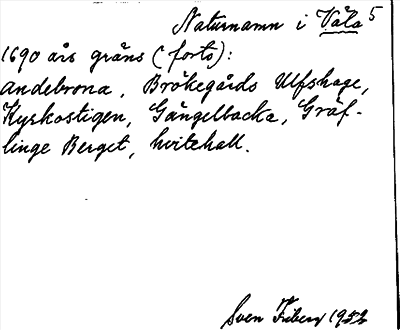 Naturnamn i Våla 5
1690 års gräns (forts):
Andebrona, Brökegårds Ulfshage,
Kyrkostigen, Gängelbacka, Gräf-
linge Berget, hvitehall.
Sven Friberg 1952